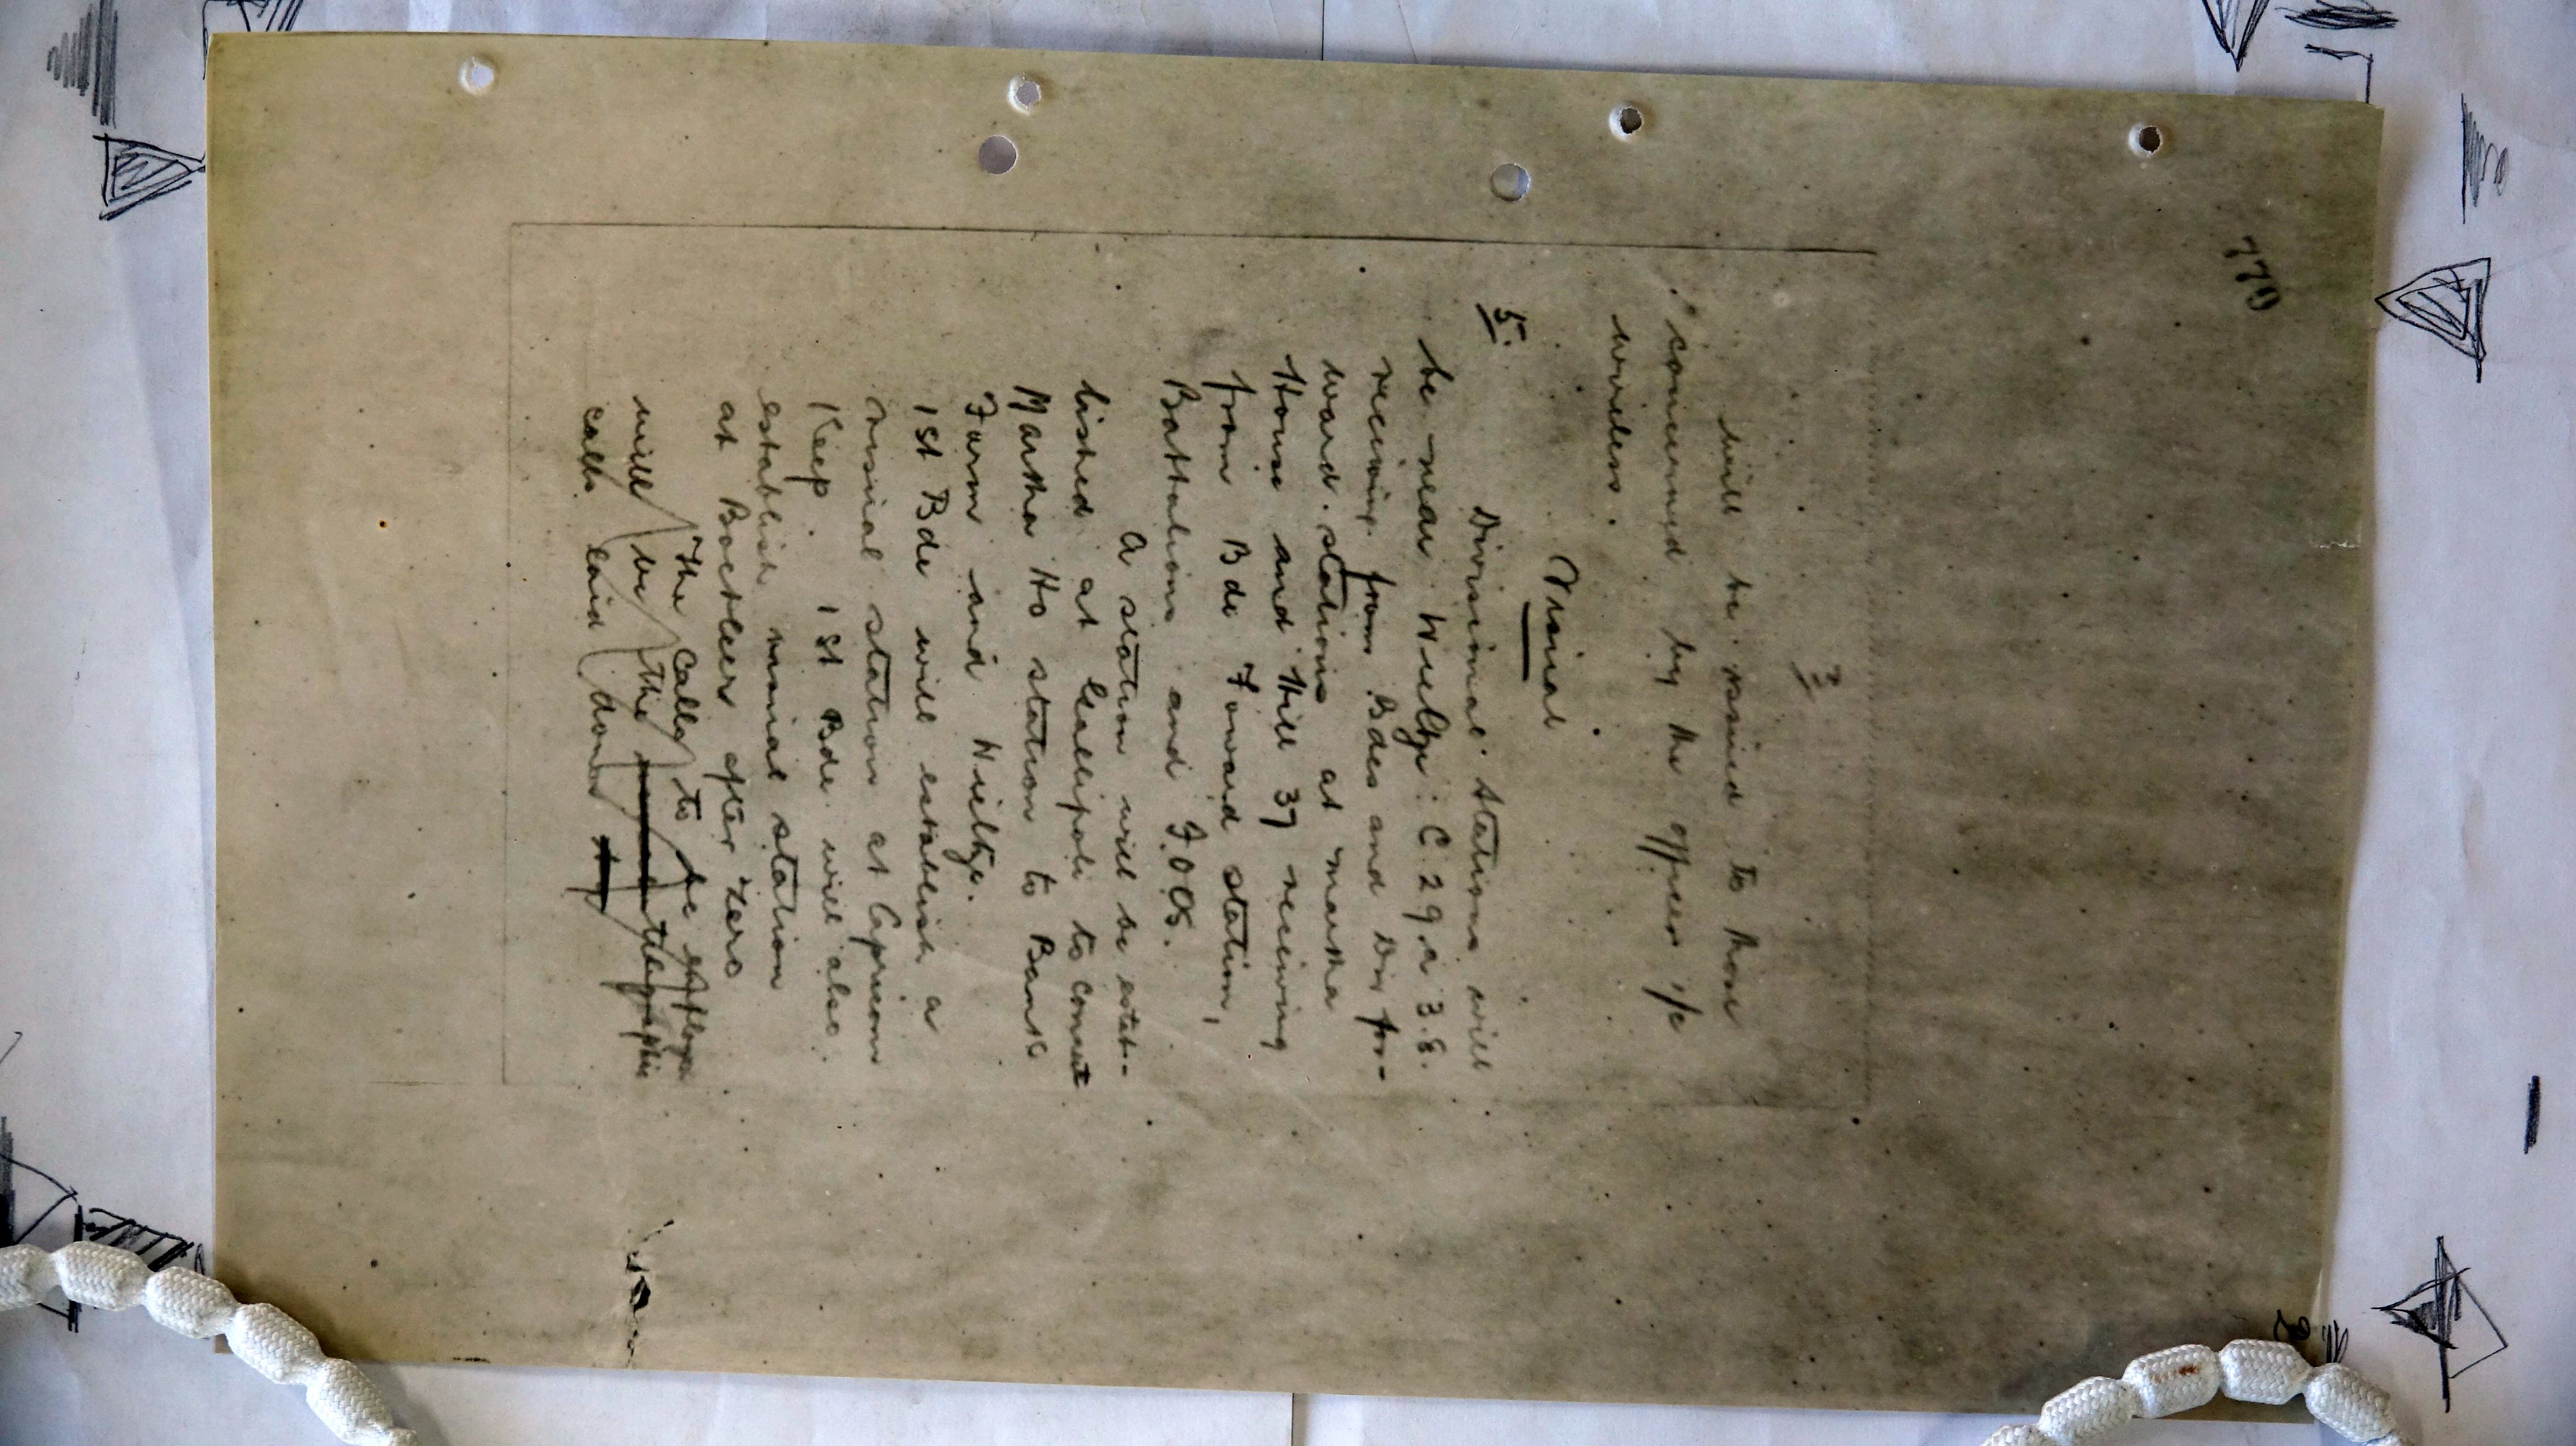 779
3
will be issued to those
concerned by the officer i/c
wireless.
Visual
5. Divisional Stations will
be near Wieltje C.29.a 3.8.
receiving from Bdes and Div for-
ward stations at Martha
House and Hill 37 receiving
from Bde Forward station,
Battalions and F.O.Os.
A station will be estab-
lished at Gallipoli to connect
Martha Ho station to Bank
Farm and Wieltje.
1st Bde will establish a
visual station at Capricorn
Keep. 1st Bde will also
establish visual station
at Bochteer after zero
The calls to be employed
will be the telegraphic
calls laid down
2